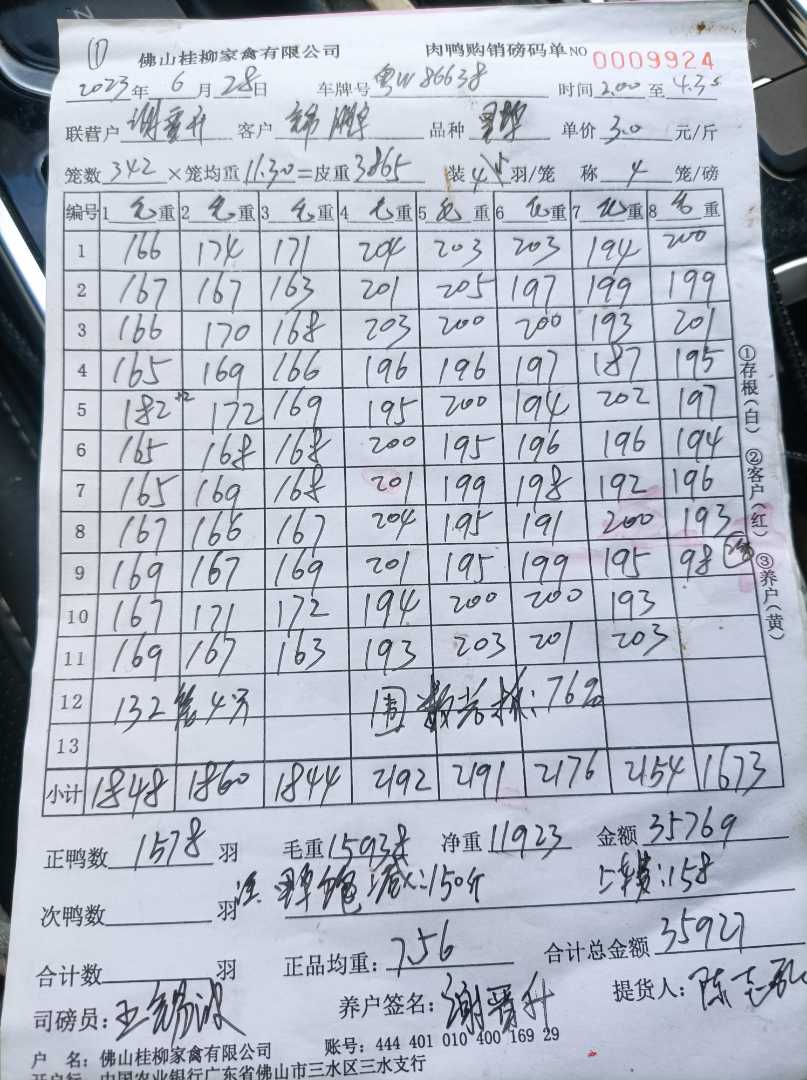 ① 佛山桂柳家禽有限公司 肉鸭购销磅码单 NO 0009924
2023年 6 月 28日 车牌号 粤W86638 时间 2.00 至 4.30
联营户 谢晋升 客户 品种 单价 3.0 元/斤
笼数 342 ×笼均重 11.30 =皮重 3865 装 4 羽/笼 称 4 笼/磅
编号 1 毛重 2 毛重 3 毛重 4 毛重 5 毛重 6 毛重 7 毛重 8 毛重
1 166 174 171 204 203 203 194 200
2 167 167 163 201 205 197 199 199
3 166 170 168 203 200 200 193 201
4 165 169 166 196 196 197 187 195
5 182 172 169 195 200 194 202 197
6 165 168 168 200 195 196 196 194
7 165 169 168 201 199 198 192 196
8 167 166 167 204 195 191 200 193
9 169 167 169 201 195 199 195 98
10 167 171 172 194 200 200 193
11 169 167 163 193 203 201 203
12 132笼4只 : 76
13
小计 1848 1860 1844 2192 2191 2176 2154 1673
①存根(白) ②客户(红) ③养户(黄)
正鸭数 1578 羽 毛重 15938 净重 11923 金额 35769
次鸭数 羽 注 减:150斤 上车费:158
合计数 羽 正品均重: 7.56 合计总金额 35927
司磅员: 王 波 养户签名: 谢晋升 提货人: 陈志
户 名: 佛山桂柳家禽有限公司 账号: 444 401 010 400 169 29
开户行: 中国农业银行广东省佛山市三水区三水支行